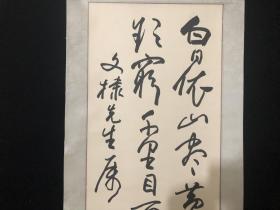 白日依山盡黄
欲窮千里目更
文棣先生属